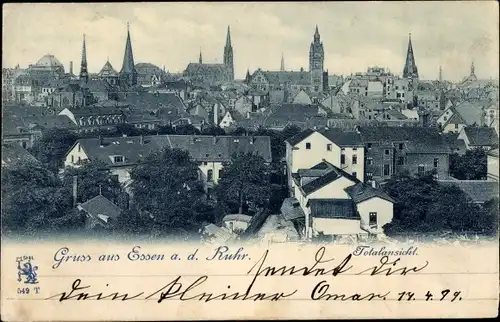 Gruss aus Essen a. d. Ruhr.
Totalansicht.
sendet dir
549 T
dein kleiner Omar. 14.4.99.